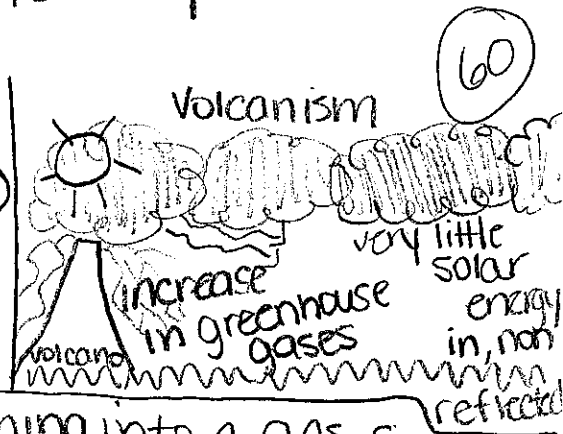 60
Volcanism
very little
solar
energy
in, non
reflected
increase
in greenhouse
gases
volcano
into a gas